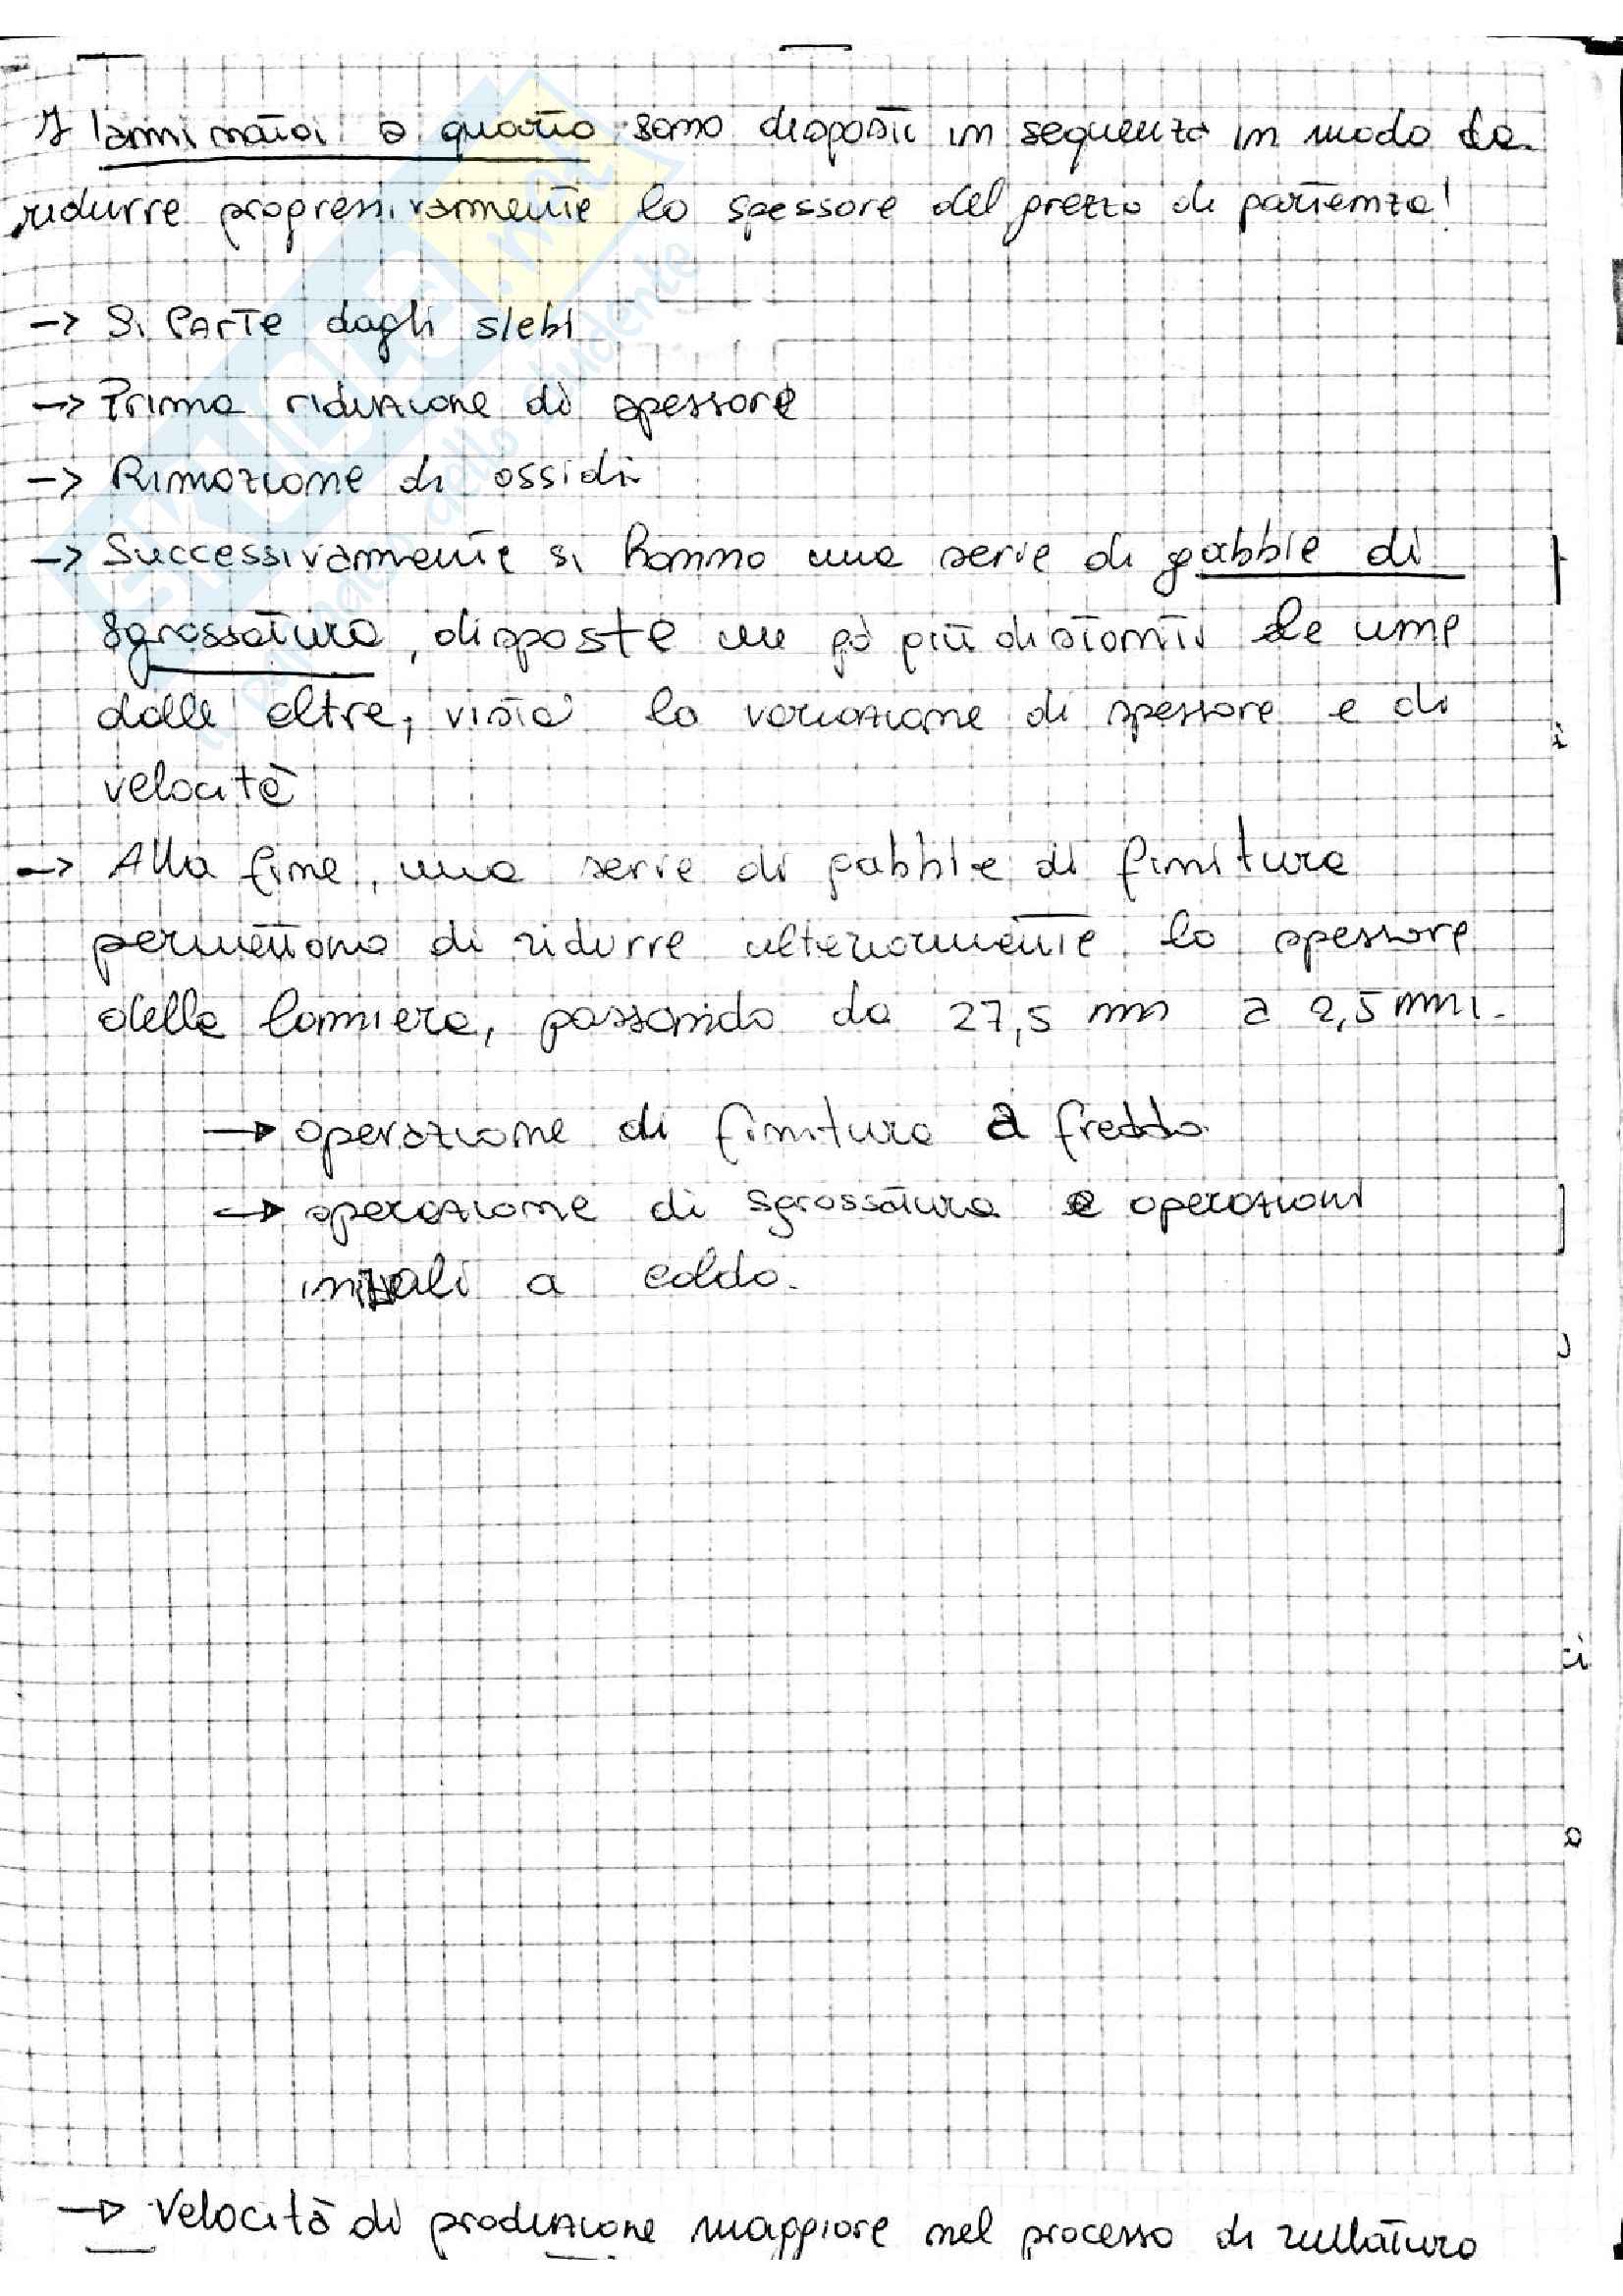 I laminatoi a quarto sono disposti in sequenza in modo da
ridurre progressivamente lo spessore del prezzo di partenza!
-> Si parte dagli slebi
-> Prima riduzione di spessore
-> Rimozione di ossidi
-> Successivamente si hanno una serie di gabbie di
sgrossatura, disposte un pò più distanti le une
dalle altre, vista la variazione di spessore e di
velocità
-> Alla fine, una serie di gabbie di finitura
permettono di ridurre ulteriormente lo spessore
della lamiera, passando da 27,5 mm a 2,5 mm.
-> operazione di finitura a freddo
-> operazione di sgrossatura e operazioni
iniziali a caldo.
-> Velocità di produzione maggiore nel processo di rullatura
SKUOLA.net
il portale dello studente